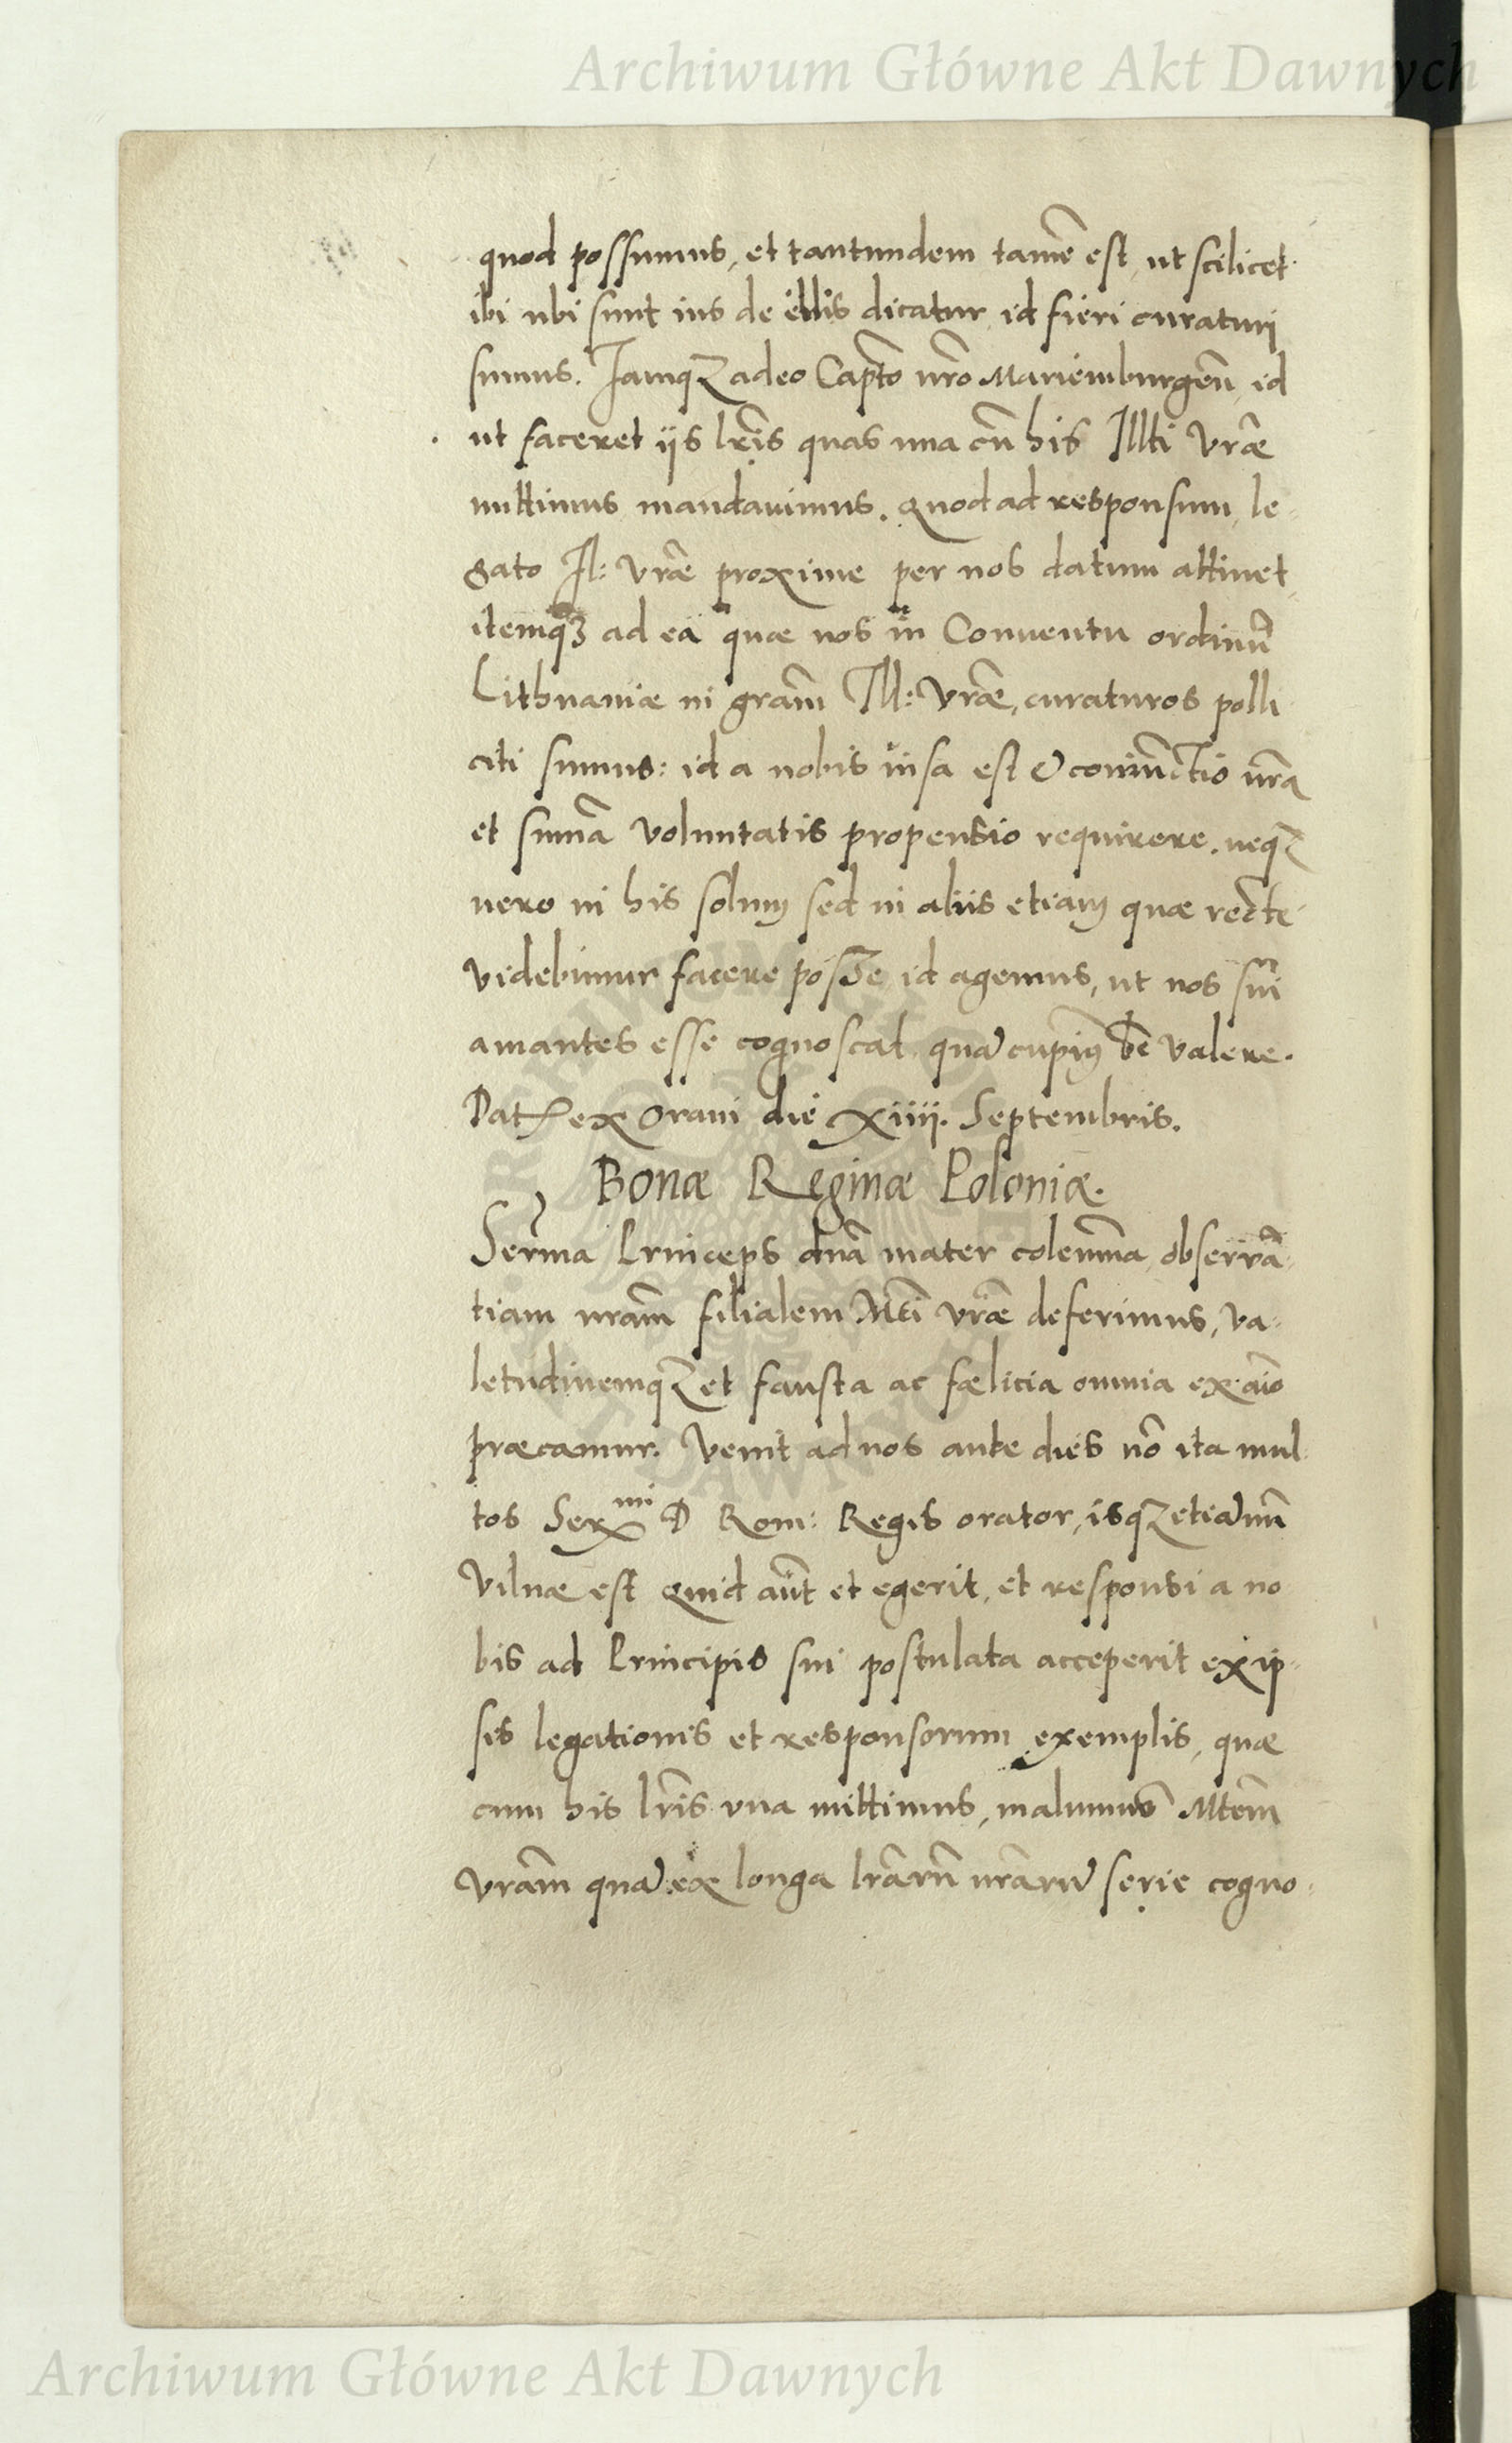 Archiwum Główne Akt Dawnych
quod possumus, et tantundem tamē est, ut scilicet
ibi ubi sunt ius de illis dicatur, id fieri curaturi
sumus. Iamqꝫ adeo Capt̄o nr̄o Mariemburgen̄, id
ut faceret iis lr̄is quas una cū his Illti Vrǣ
mittimus mandauimus. Quod ad responsum, le-
gato Il: Vrǣ proxime per nos datum attinet,
itemqꝫ ad ea quæ nos in Conuentu ordinū
Lithuaniæ in gram̄ Ill: Vrǣ, curaturos polli
citi sumus: id a nobis iusa est coniūctio nr̄a
et sum̄a voluntatis propensio requirere. neqꝫ
uero in his solum sed in aliis etiam quæ recte
videbimur facere posse id agemus, ut nos sui
amantes esse cognoscat. quā cupim9 bn̄e valere.
Dat ex Orani die xiiii. Septembris.
Bonæ Reginæ Poloniæ.
Serma Princeps dnā mater colenma, obseruā-
tiam nram̄ filialem Mti vrǣ deferimus, va-
letudinemqꝫ et fausta ac fælicia omnia ex aīo
præcamur. Venit ad nos ante dies nō ita mul-
tos Ser^mi D Rom: Regis orator, isqꝫ etiā nū
Vilnæ est Quid aūt et egerit, et responsi a no
bis ad Principis sui postulata acceperit ex ip-
sis legationis et responsorum exemplis, quæ
cum his lr̄is una mittimus, malumus Mtem̄
vram̄ quā ex longa lr̄arū nr̄arū serie cogno-
Archiwum Główne Akt Dawnych